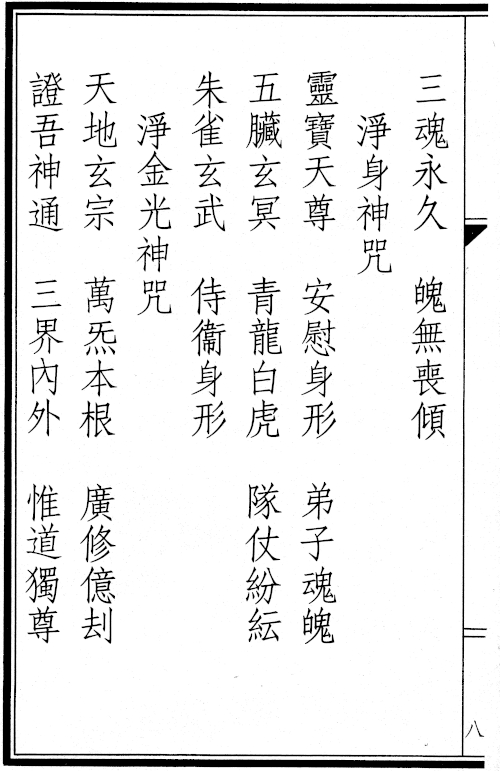 三魂永久　魄無喪傾
淨身神咒
靈寶天尊　安慰身形　弟子魂魄
五臟玄冥　青龍白虎　隊仗紛紜
朱雀玄武　侍衞身形
淨金光神咒
天地玄宗　萬炁本根　廣修億刦
證吾神通　三界內外　惟道獨尊
八